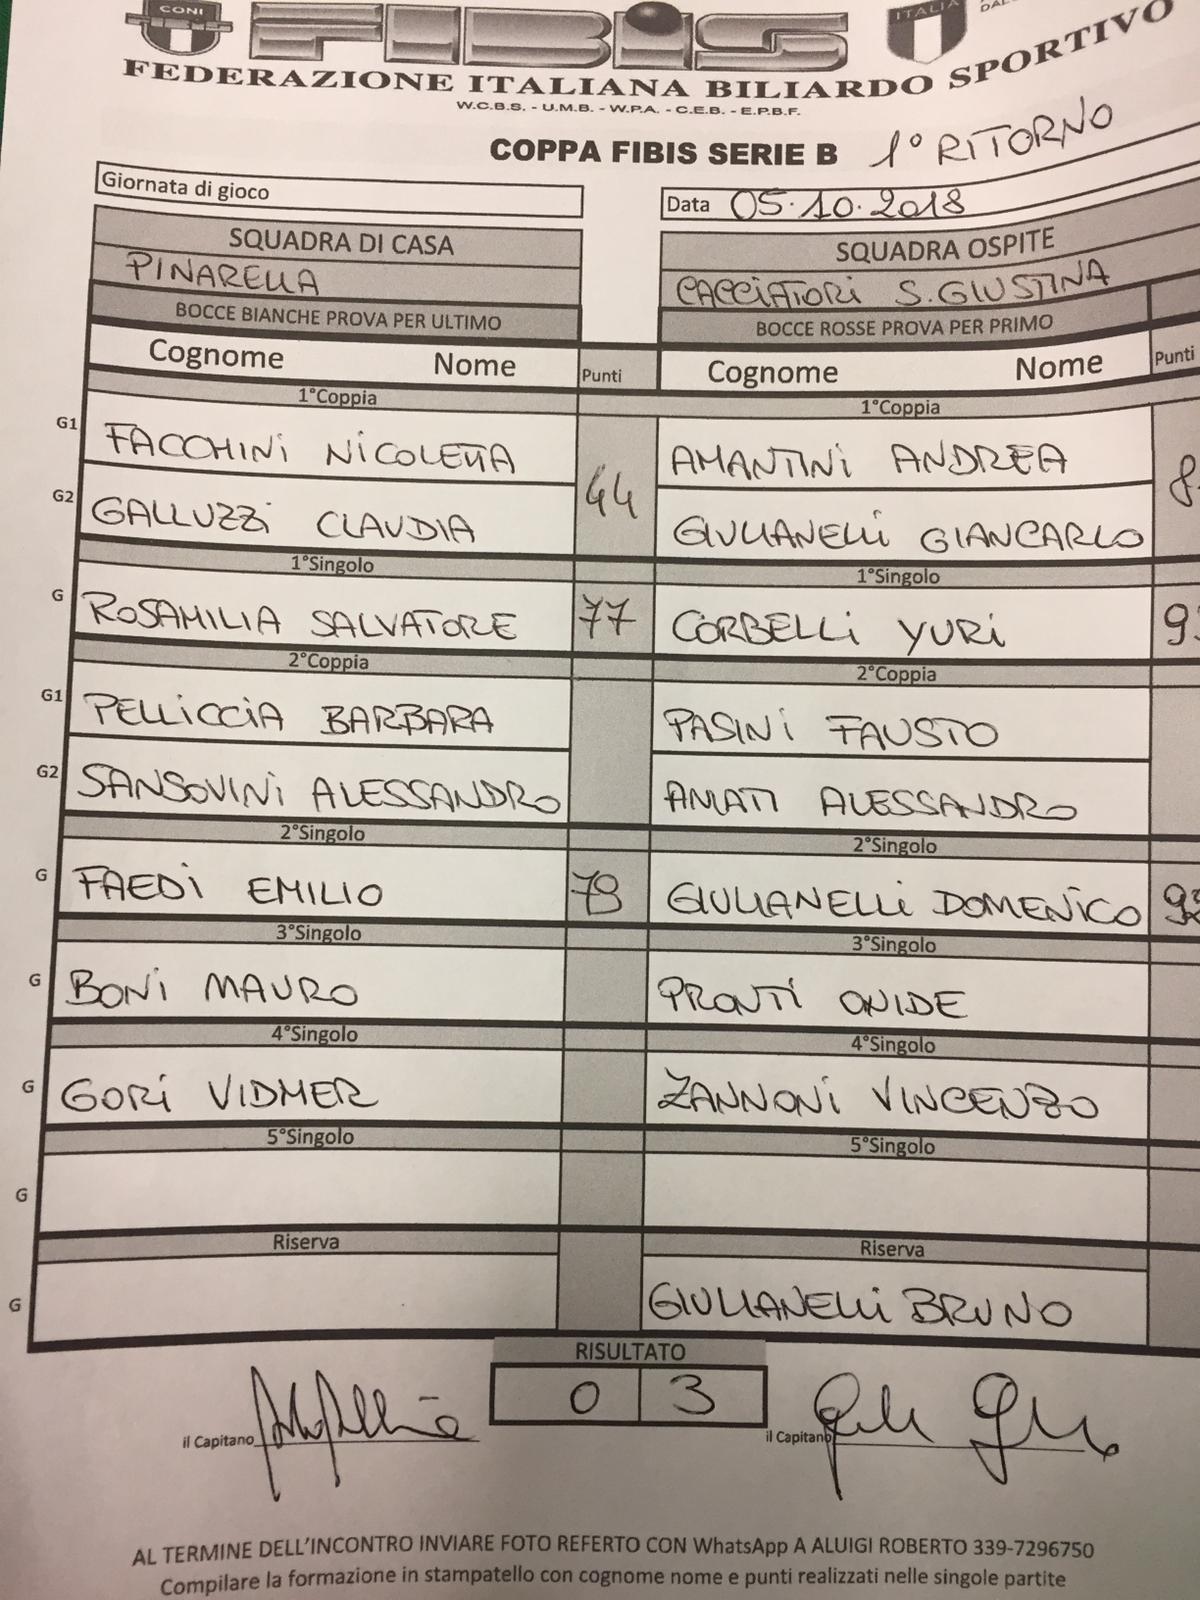 CONI
FIBIS
ITALIA
FEDERAZIONE ITALIANA BILIARDO SPORTIVO
W.C.B.S. - U.M.B. - W.P.A. - C.E.B. - E.P.B.F.
COPPA FIBIS SERIE B 1° RITORNO
Giornata di gioco
Data 05.10.2018
SQUADRA DI CASA SQUADRA OSPITE
PINARELLA CACCIATORI S. GIUSTINA
BOCCE BIANCHE PROVA PER ULTIMO BOCCE ROSSE PROVA PER PRIMO
Cognome Nome Punti Cognome Nome Punti
1°Coppia 1°Coppia
G1 FACCHINI NICOLETTA 44 AMANTINI ANDREA
G2 GALLUZZI CLAUDIA GIULIANELLI GIANCARLO
1°Singolo 1°Singolo
G ROSAMILIA SALVATORE 77 CORBELLI YURI
2°Coppia 2°Coppia
G1 PELLICCIA BARBARA PASINI FAUSTO
G2 SANSOVINI ALESSANDRO AMATI ALESSANDRO
2°Singolo 2°Singolo
G FAEDI EMILIO GIULIANELLI DOMENICO
3°Singolo 3°Singolo
G BONI MAURO PRONTI ONIDE
4°Singolo 4°Singolo
G GORI VIDMER ZANNONI VINCENZO
5°Singolo 5°Singolo
G
Riserva Riserva
G GIULIANELLI BRUNO
RISULTATO
0 3
il Capitano il Capitano
AL TERMINE DELL'INCONTRO INVIARE FOTO REFERTO CON WhatsApp A ALUIGI ROBERTO 339-7296750
Compilare la formazione in stampatello con cognome nome e punti realizzati nelle singole partite